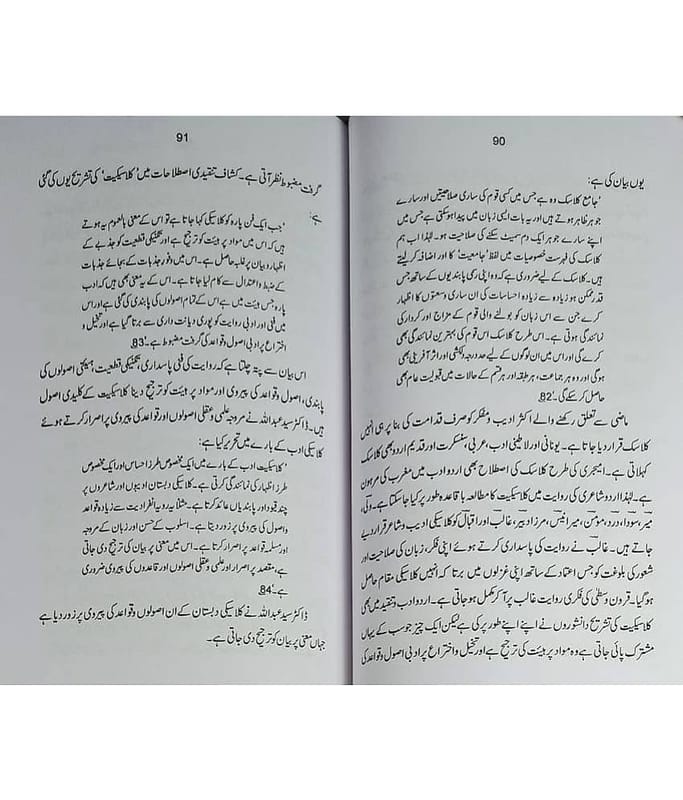 90
یوں بیان کی ہے:
'جامع کلاسک وہ ہے جس میں کسی قوم کی ساری صلاحیتیں اور سارے
جوہر ظاہر ہوتے ہیں اور یہ بات ایسی زبان میں پیدا ہوسکتی ہے جس میں
اپنے سارے جوہر ایک دم سمیٹ سکنے کی صلاحیت ہو۔ لہٰذا اب ہم
کلاسک کی فہرست خصوصیات میں 'جامعیت' کا اور اضافہ کر لیتے
ہیں۔ کلاسک کے لیے ضروری ہے کہ وہ اپنی رسمی پابندیوں کے ساتھ جس
قدر ممکن ہو زیادہ سے زیادہ احساسات کی ان ساری وسعتوں کا اظہار
کرے جن سے اس زبان کو بولنے والی قوم کے مزاج اور کردار کی
نمائندگی ہوتی ہے۔ اس طرح کلاسک اس قوم کی بہترین نمائندگی بھی
کرے گی اور اس میں ان لوگوں کے لیے حد درجہ دلکشی اور اثر آفرینی بھی
ہوگی اور وہ ہر جماعت، ہر طبقہ اور ہر قسم کے حالات میں قبولیت عام بھی
حاصل کر سکے گی۔'82
ماضی سے تعلق رکھنے والے اکثر ادیب و مفکر کو صرف قدامت کی بنا پر ہی انھیں
کلاسک قرار دیا جاتا ہے۔ یونانی اور لاطینی ادب، عربی، سنسکرت اور قدیم اردو بھی کلاسک
کہلاتی ہے۔ امیجری کی طرح کلاسک کی اصطلاح بھی اردو ادب میں مغرب کی مرہون
ہے۔ لہٰذا اردو شاعری کی روایت میں کلاسیکیت کا مطالعہ باقاعدہ طور پر کیا جاسکتا ہے۔ ولی،
میر، سودا، درد، مومن، میر انیس، مرزا دبیر، غالب اور اقبال کو کلاسیکی ادیب و شاعر قرار دیے
جاتے ہیں۔ غالب نے روایت کی پاسداری کرتے ہوئے اپنی فکر، زبان کی صلاحیت اور
شعور کی بلوغت کو جس اعتماد کے ساتھ اپنی غزلوں میں برتا کہ انھیں کلاسیکی مقام حاصل
ہوگیا۔ قرون سطیٰ کی فکری روایت غالب پر آکر مکمل ہوجاتی ہے۔ اردو ادب و تنقید میں بھی
کلاسیکیت کی تشریح دانشوروں نے اپنے اپنے طور پر کی ہے لیکن ایک چیز جو سب کے یہاں
مشترک پائی جاتی ہے وہ مواد پر ہیئت کی ترجیح ہے اور تخیل و اختراع پر ادبی اصول و قواعد کی
91
گرفت مضبوط نظر آتی ہے۔ کشاف تنقیدی اصطلاحات میں 'کلاسیکیت' کی تشریح یوں کی گئی
ہے:
'جب ایک فن پارہ کو کلاسیکی کہا جاتا ہے تو اس کے معنی بالعموم یہ ہوتے
ہیں کہ اس میں مواد پر ہیئت کو ترجیح ہے اور تکنیکی قطعیت کو جذبے کے
اظہار و بیان پر غلبہ حاصل ہے۔ اس میں وفور جذبات کے بجائے جذبات
کے ضبط و اعتدال سے کام لیا جاتا ہے۔ اس کے یہ معنی بھی ہیں کہ ادب
پارہ جس ہیئت میں ہے اس کے تمام اصولوں کی پابندی کی گئی ہے اور اس
میں فنی اور ادبی روایت کو پوری دیانت داری سے برتا گیا ہے اور تخیل و
اختراع پر ادبی اصول و قواعد کی گرفت مضبوط ہے۔'83
اس بیان سے پتہ چلتا ہے کہ روایت کی فنی پاسداری، تکنیکی قطعیت، ہیئتی اصولوں کی
پابندی، اصول و قواعد کی پیروی اور مواد پر ہیئت کو ترجیح دینا کلاسیکیت کے کلیدی اصول
ہیں۔ ڈاکٹر سید عبداللہ نے مروجہ علمی و عقلی اصولوں اور قواعد کی پیروی پر اصرار کرتے ہوئے
کلاسیکی ادب کے بارے میں تحریر کیا ہے:
'کلاسیکیت ادب کے بارے میں ایک مخصوص طرز احساس اور ایک مخصوص
طرز اظہار کی نمائندگی کرتی ہے۔ کلاسیکی دبستان ادیبوں اور شاعروں پر
چند قیود اور پابندیاں عائد کرتا ہے۔ مثلاً یہ رویہ انفرادیت سے زیادہ قواعد
و اصول کی پیروی پر زور دیتا ہے۔ اسلوب کے حسن اور زبان کے مروجہ
اور مسلمہ قواعد پر اصرار کرتا ہے۔ اس میں معنی پر بیان کی ترجیح دی جاتی
ہے، مقصد پر اصرار اور علمی و عقلی اصولوں اور قاعدوں کی پیروی ضروری
ہے۔'84
ڈاکٹر سید عبداللہ نے کلاسیکی دبستان کے ان اصولوں و قواعد کی پیروی پر زور دیا ہے
جہاں معنی پر بیان کو ترجیح دی جاتی ہے۔